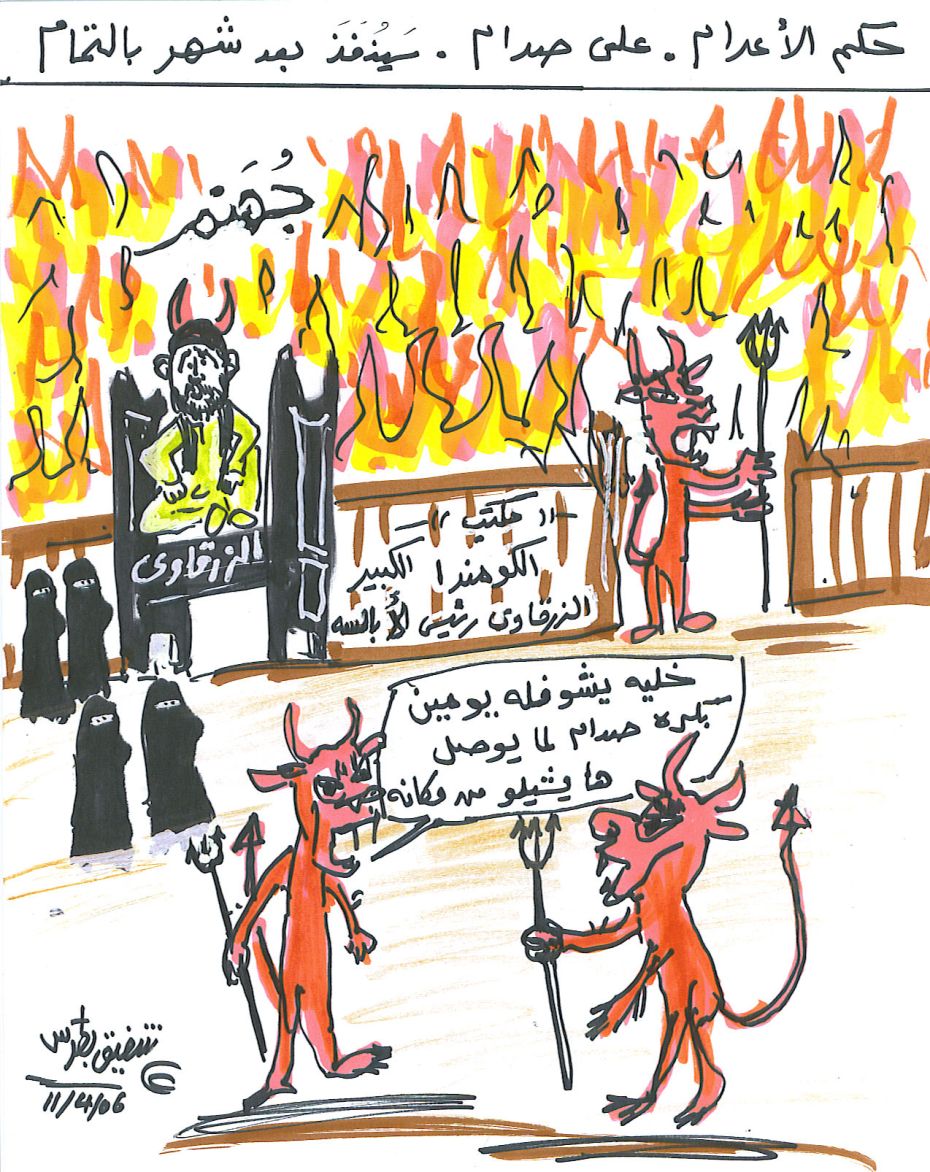 حكم الأعدام . على صدام . سَيُنفَذ بعد شهر بالتمام
جُهَنم
الزرقاوى
"مكتب"
الكومندا الكبير
الزرقاوى رئيس الأبالسه
خليه يشوفله يومين
بكره صدام لما يوصل
ها يشيلو من مكانه
شفيق بطرس
11/4/06